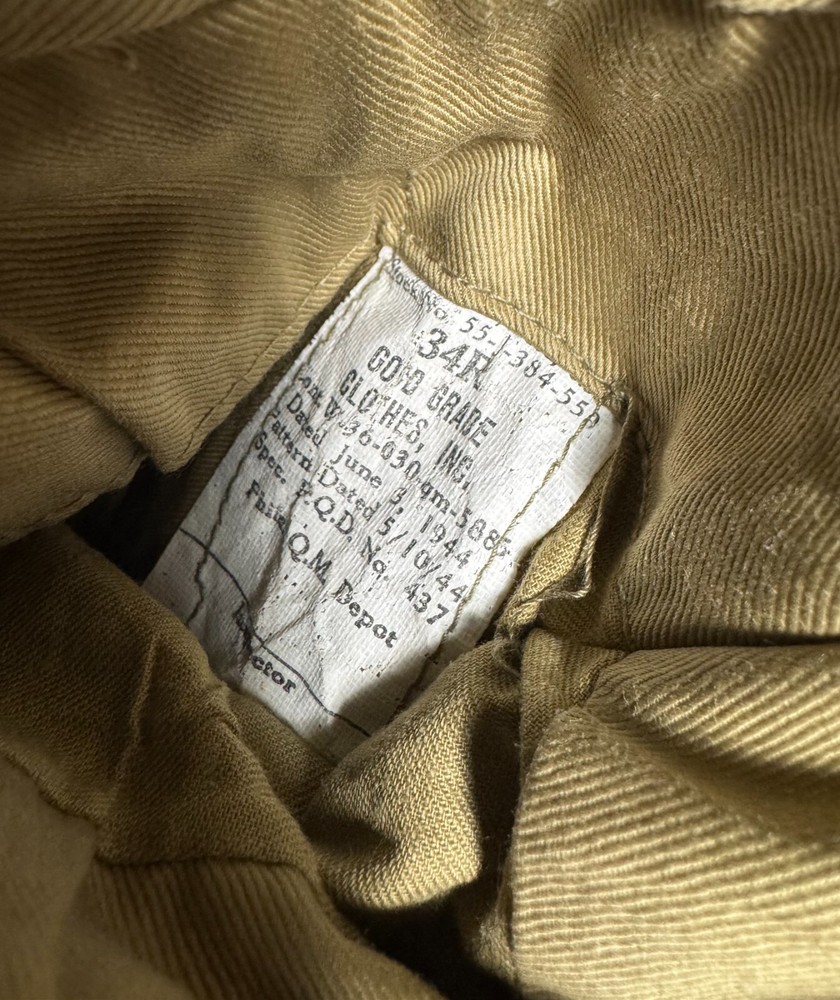 Stock No. 55-J-384-550
34R
GOOD GRADE
CLOTHES, INC.
W-36-030-qm-5085
Dated June 3, 1944
Pattern Dated 5/10/44
Spec. P.Q.D. No. 437
Phila Q.M. Depot